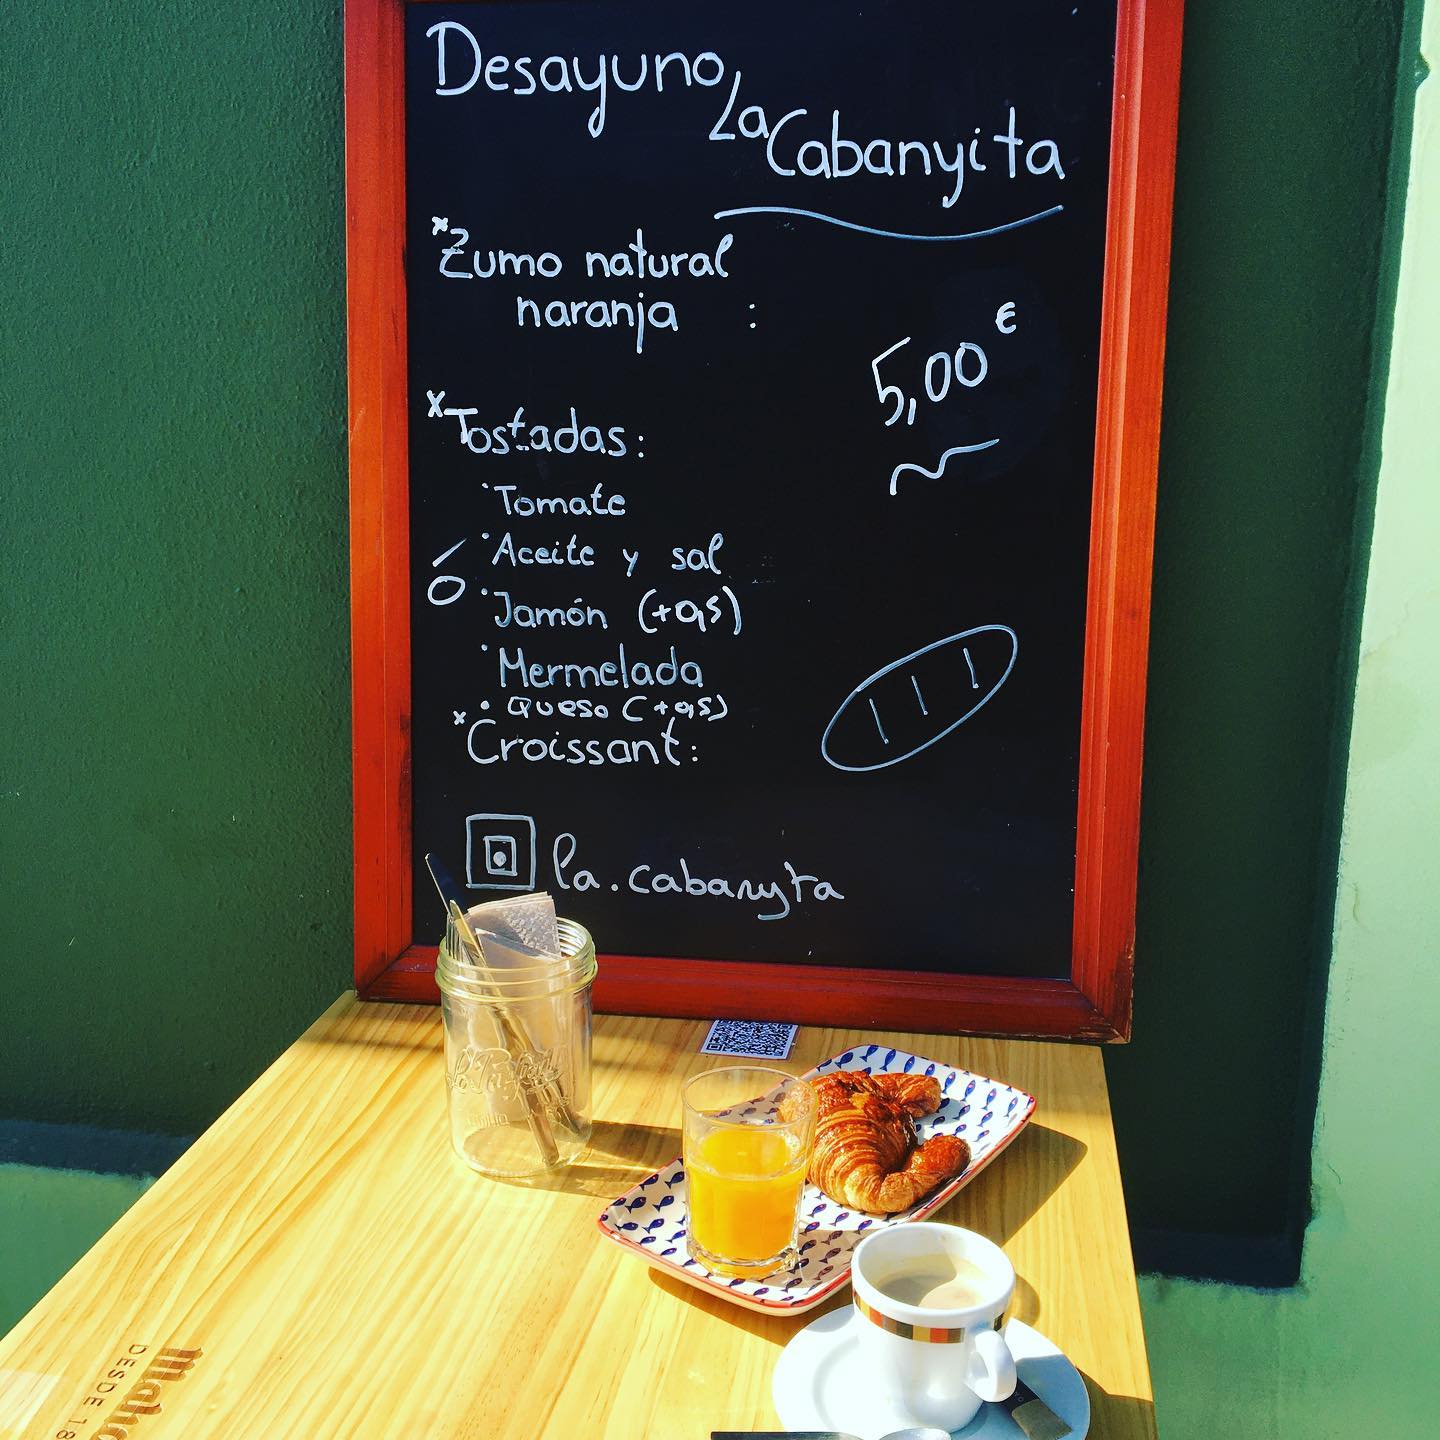 Desayuno,
La Cabanyita
*Zumo natural
naranja :
5,00 €
*Tostadas:
·Tomate
·Aceite y sal
·Jamón (+0,5)
·Mermelada
·Queso (+0,5)
*Croissant:
la.cabanyta
DESDE 18